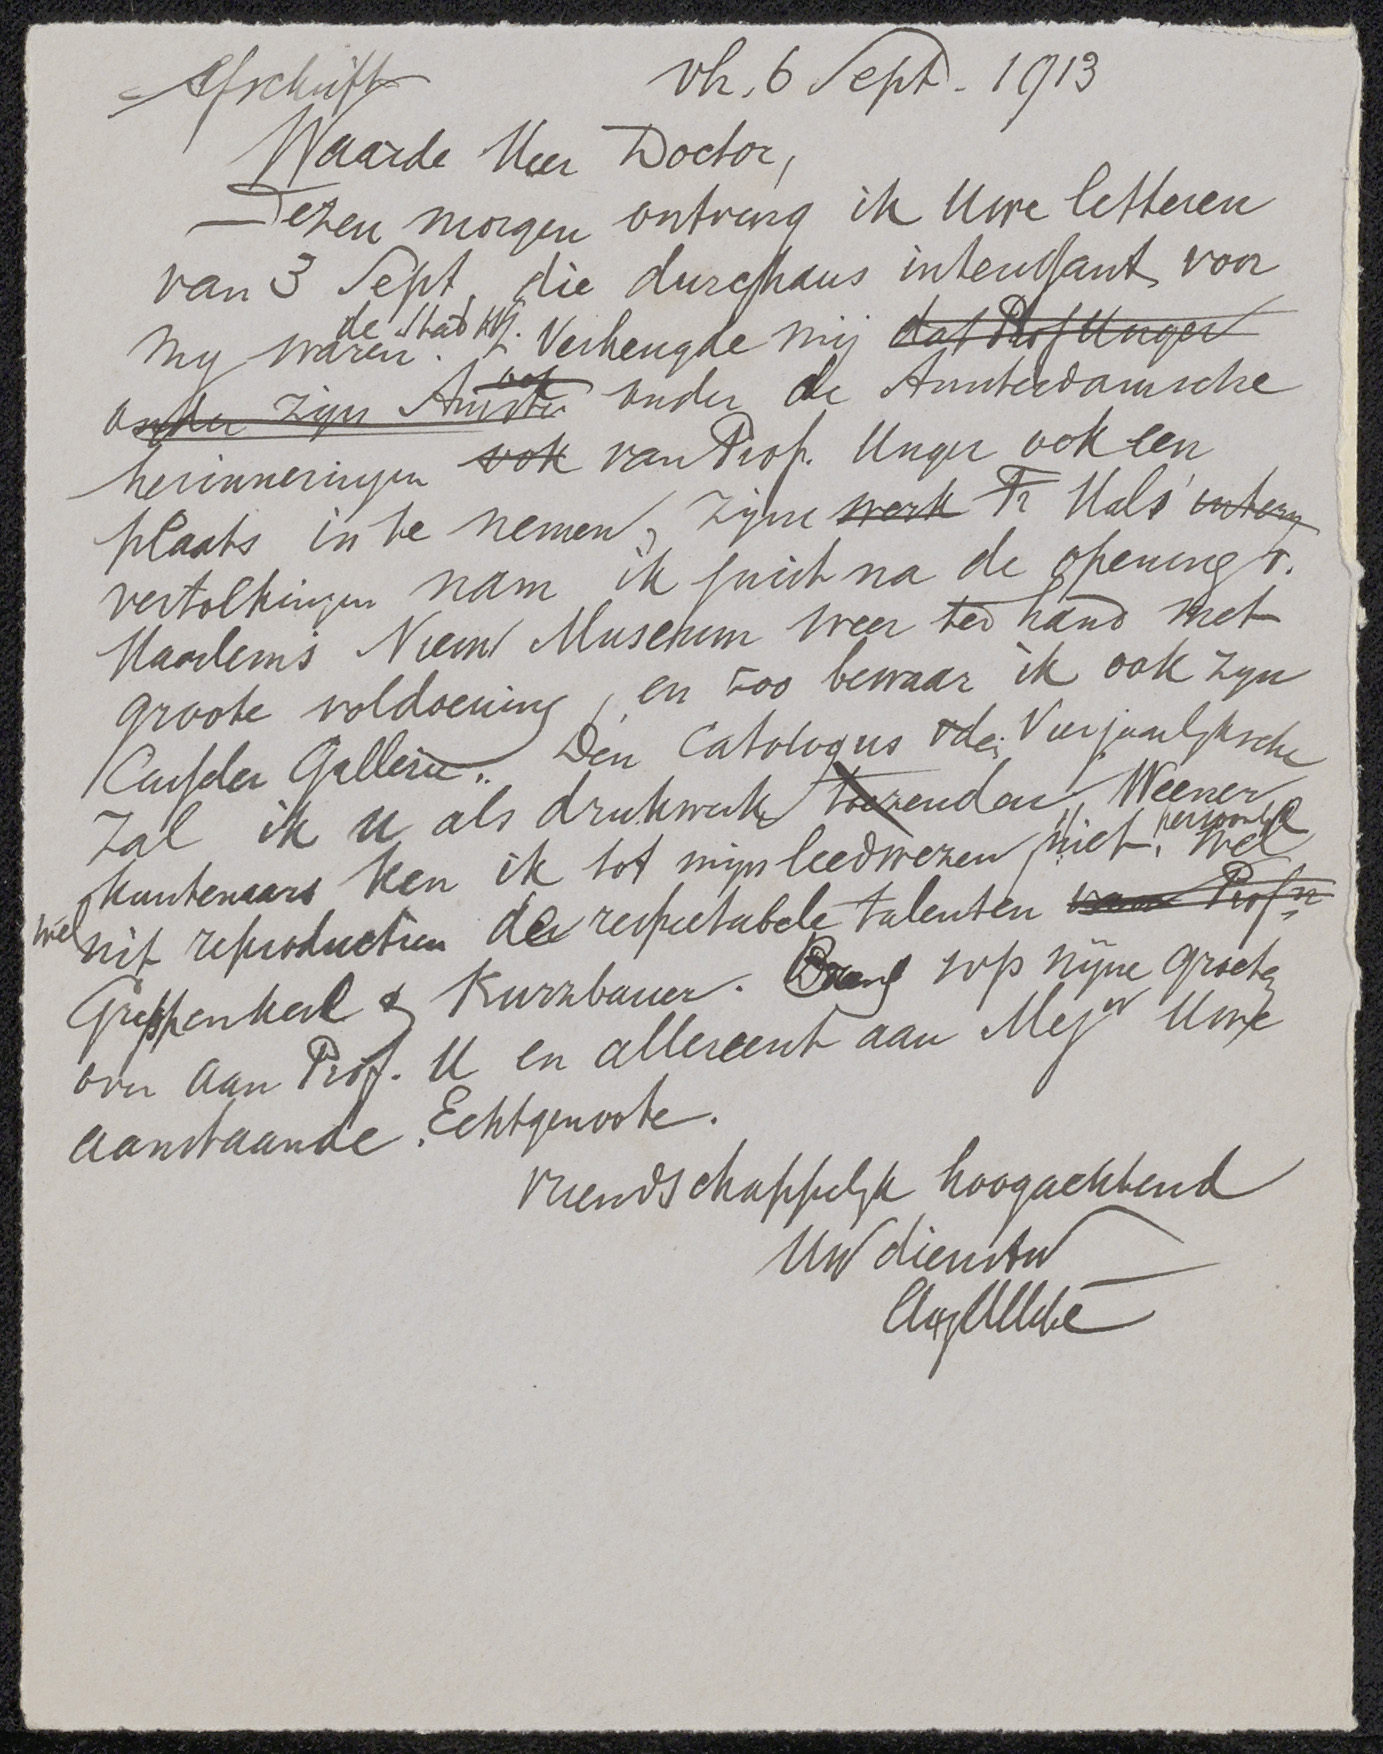 Afschrift vh. 6 Sept. 1913
Waarde Heer Doctor,
Dezen morgen ontving ik Uwe letteren
van 3 Sept, die durchaus interessant voor
my waren. Verheugde mij dat Prof Unger
de Stad
onder zijn Amster onder de Amsterdamsche
ook
herinneringen ook van Prof. Unger ook een
plaats in te nemen, zijne werk Fr Hals'
vertolkingen nam ik juist na de opening v.
Haarlem's Nieuw Museum weer ter hand met
groote voldoening, en zoo bewaar ik ook zyn
Casseler Gallerie. Den Catologus der Vierjaarlyksche
zal ik u als drukwerk toezenden, Weener
kunstenaars ken ik tot mijn leedwezen niet persoonlijk wel
wel uit reproductien de respectabele talenten van Profn
Grippenkerl & Kurzbauer. Breng svp mijne groeten
over aan Prof. U en allereerst aan Mejr Uwe
aanstaande Echtgenoote.
vriendschappelyk hoogachtend
Uw dienstw
Aug Allebé